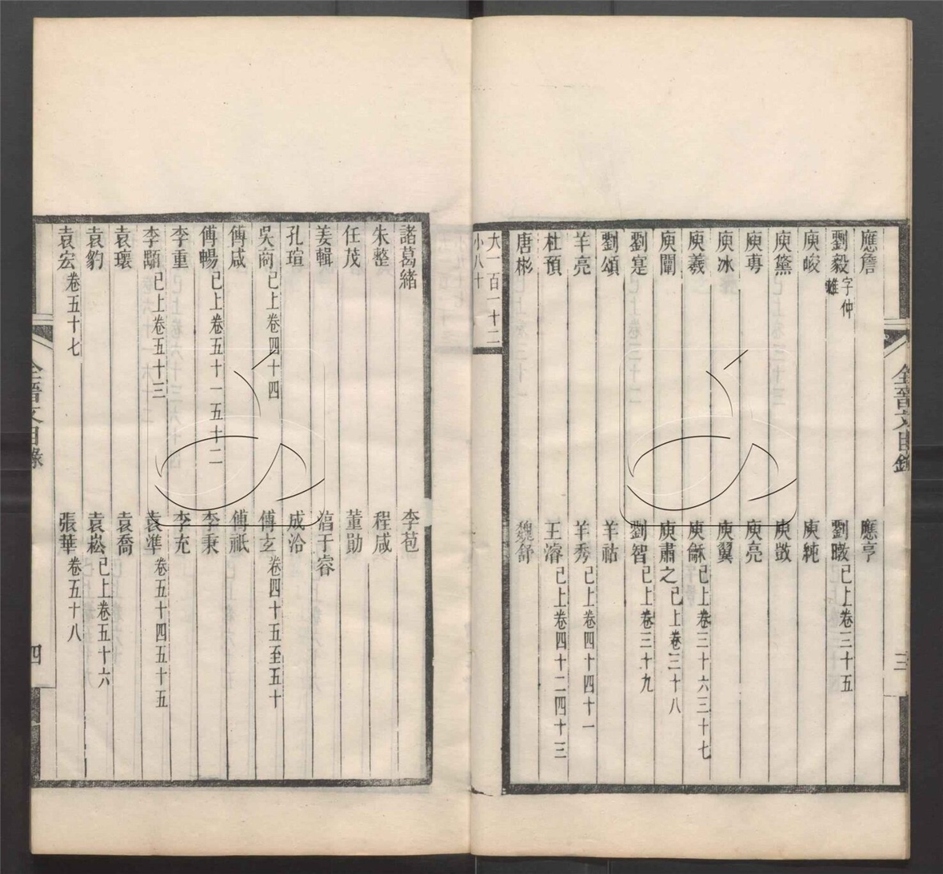 應詹 應亨
劉毅字仲雄 劉暾已上卷三十五
庾峻 庾純
庾儵 庾敳
庾旉 庾亮
庾冰 庾翼
庾羲 庾龢已上卷三十六三十七
庾闡 庾肅之已上卷三十八
劉寔 劉智已上卷三十九
劉頌 羊祜
羊亮 羊秀已上卷四十四十一
杜預 王濬已上卷四十二四十三
唐彬 魏舒
大一百一十二
小八十
全晉文目錄 三
諸葛緒 李苞
朱整 程咸
任茂 董勛
姜輯 湻于睿
孔瑄 成洽
吳商已上卷四十四 傅玄卷四十五至五十
傅咸 傅祗
傅暢已上卷五十一五十二 李秉
李重 李充
李顒已上卷五十三 袁準卷五十四五十五
袁瓌 袁喬
袁豹 袁崧已上卷五十六
袁宏卷五十七 張華卷五十八
全晉文目錄 四